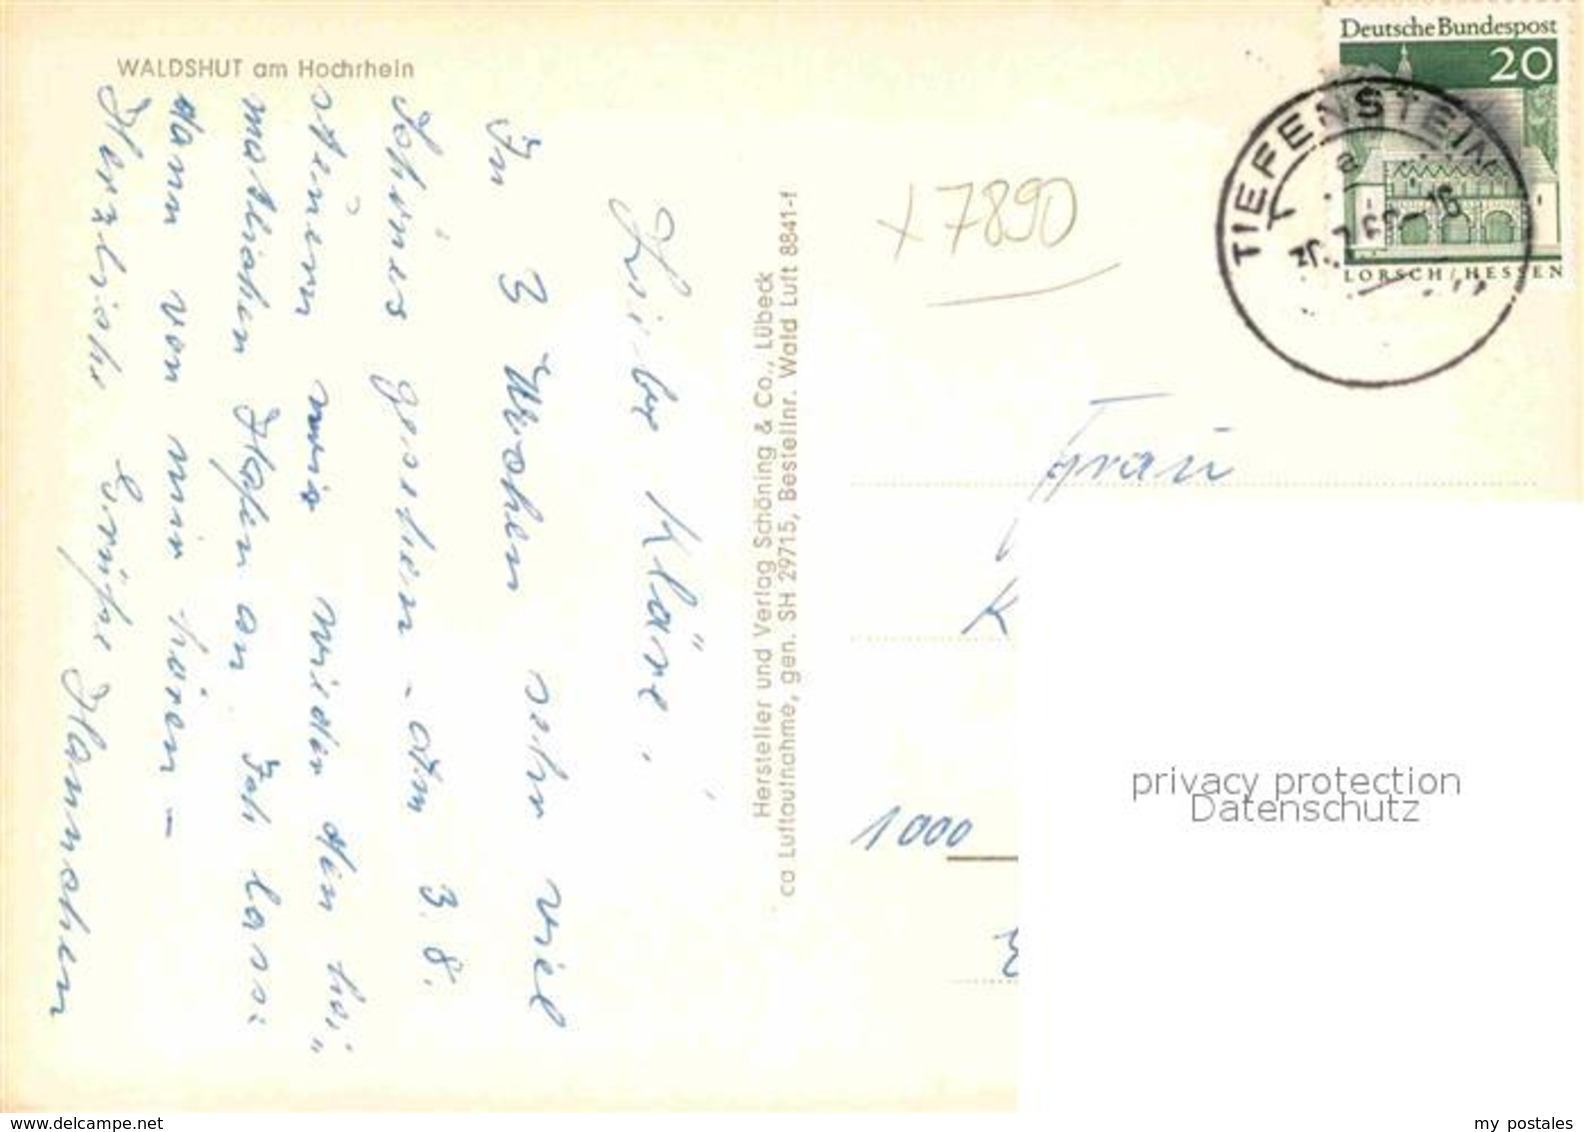 WALDSHUT am Hochrhein
Liebe Kläre!
In 3 Wochen sehr viel
Schönes gesehen - am 3.8.
steuern wir wieder den hei-
matlichen Hafen an. Ich lasse
dann von mir hören -
Herzliche Grüße Hannchen
Hersteller und Verlag Schöning & Co., Lübeck
ca Luftaufnahme, gen. SH 29715, Bestellnr. Wald Luft 8841-f
x 7890
Deutsche Bundespost
20
LORSCH/HESSEN
TIEFENSTEIN
a
-16
Frau
K
1000
privacy protection
Datenschutz
www.delcampe.net
my postales